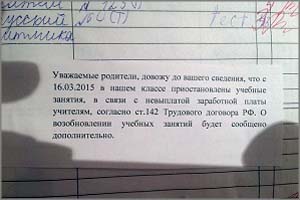 русский
№ 125(т)
№ (т)
тест
Уважаемые родители, довожу до вашего сведения, что с
16.03.2015 в нашем классе приостановлены учебные
занятия, в связи с невыплатой заработной платы
учителям, согласно ст.142 Трудового договора РФ. О
возобновлении учебных занятий будет сообщено
дополнительно.